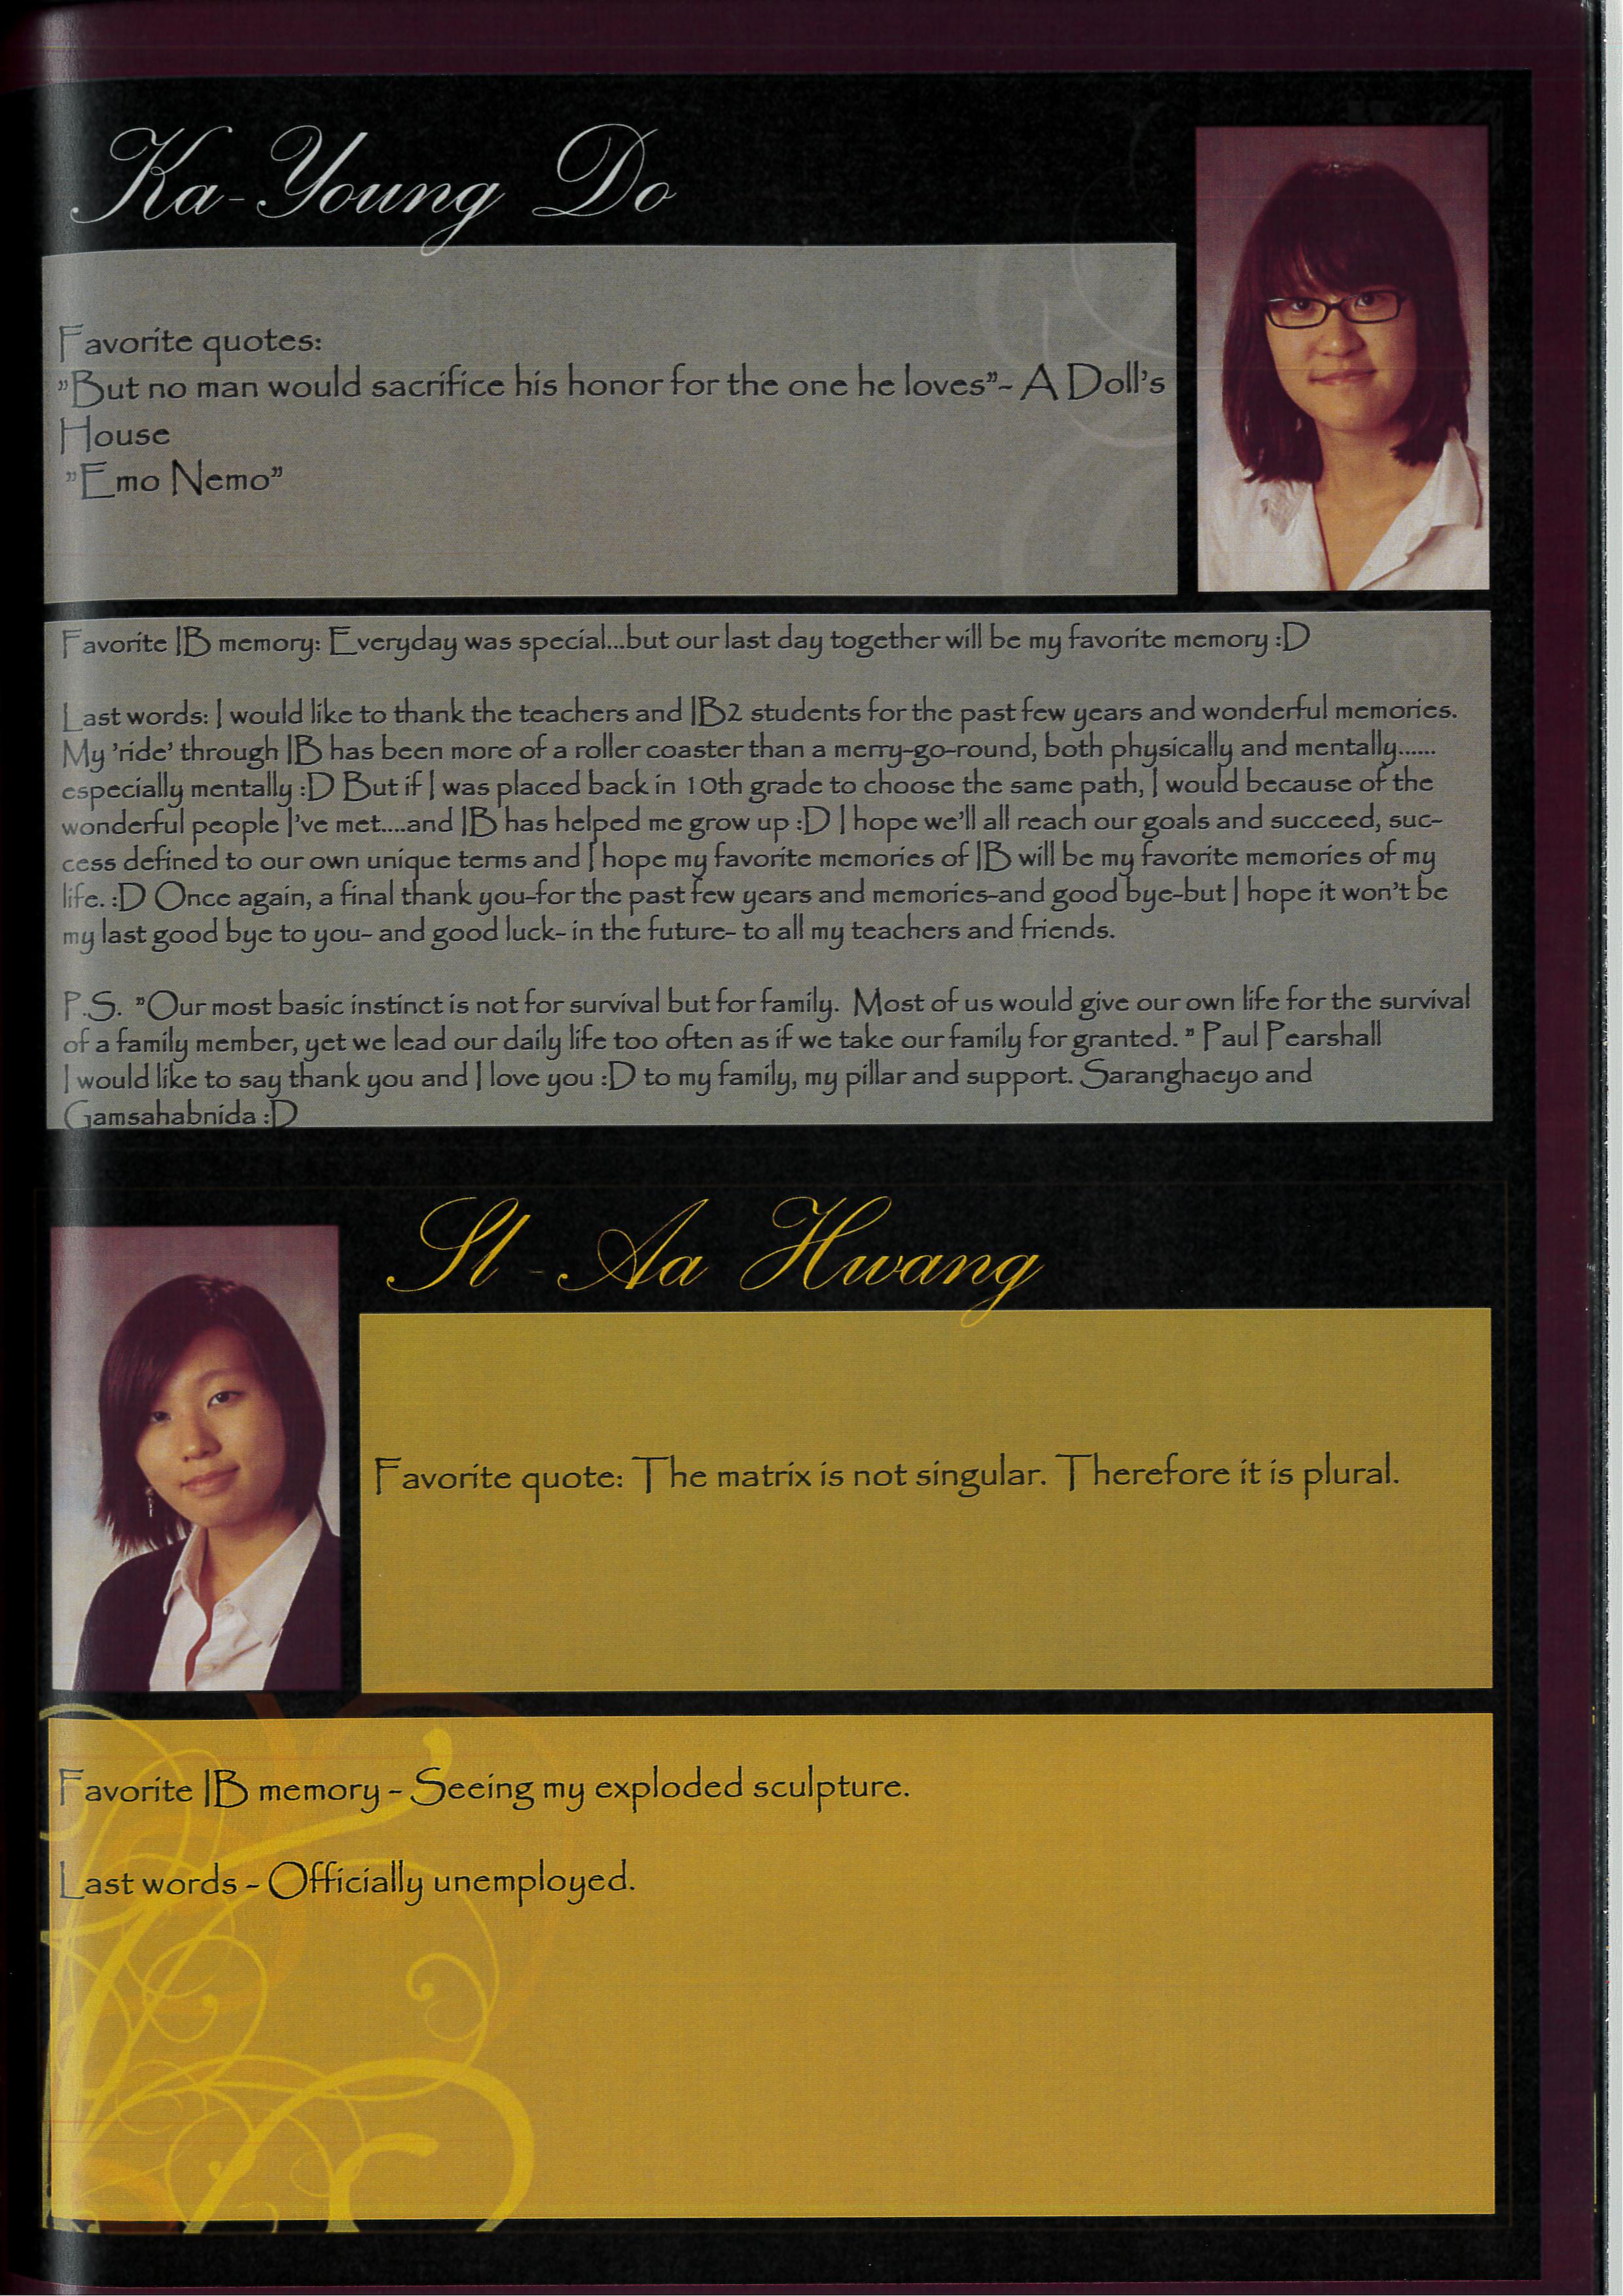 Ka-Young Do
Favorite quotes:
"But no man would sacrifice his honor for the one he loves"- A Doll's
House
"Emo Nemo"
Favorite IB memory: Everyday was special...but our last day together will be my favorite memory :D
Last words: I would like to thank the teachers and IB2 students for the past few years and wonderful memories.
My 'ride' through IB has been more of a roller coaster than a merry-go-round, both physically and mentally......
especially mentally :D But if I was placed back in 10th grade to choose the same path, I would because of the
wonderful people I've met....and IB has helped me grow up :D I hope we'll all reach our goals and succeed, suc-
cess defined to our own unique terms and I hope my favorite memories of IB will be my favorite memories of my
life. :D Once again, a final thank you-for the past few years and memories-and good bye-but I hope it won't be
my last good bye to you- and good luck- in the future- to all my teachers and friends.
P.S. "Our most basic instinct is not for survival but for family. Most of us would give our own life for the survival
of a family member, yet we lead our daily life too often as if we take our family for granted. " Paul Pearshall
I would like to say thank you and I love you :D to my family, my pillar and support. Saranghaeyo and
Gamsahabnida :D
Sl - Aa Hwang
Favorite quote: The matrix is not singular. Therefore it is plural.
Favorite IB memory - Seeing my exploded sculpture.
Last words - Officially unemployed.